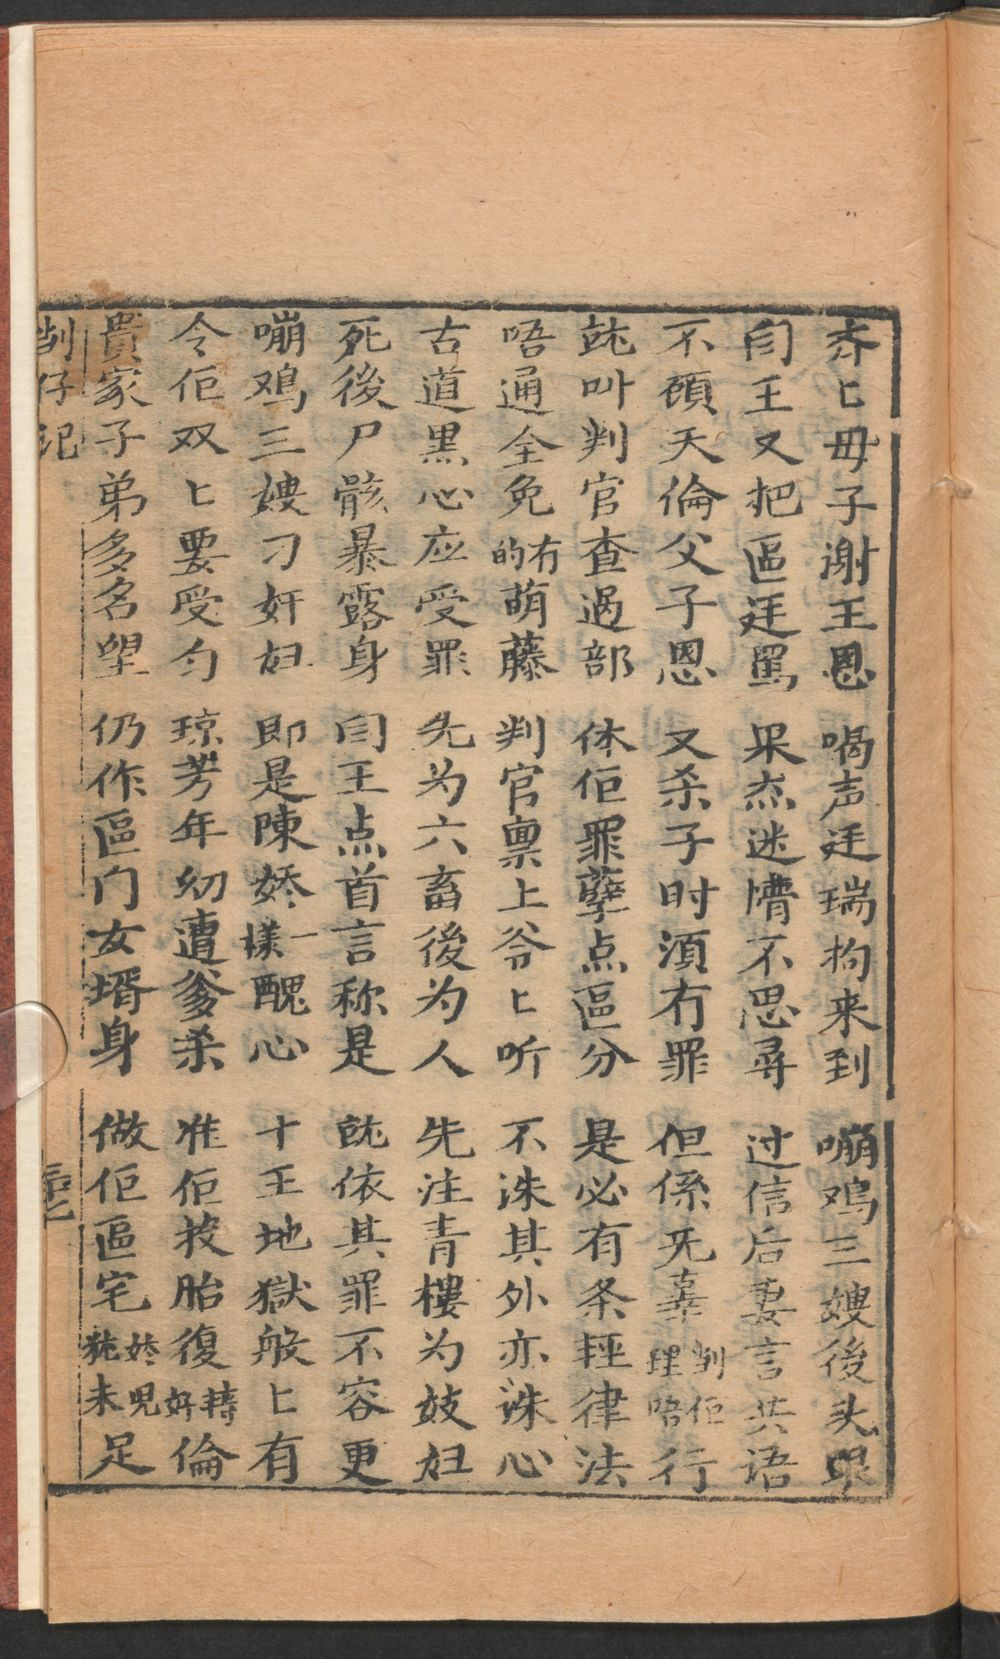 乔〻母子谢王恩　喝声廷瑞拘来到　嘣鸡三嫂後头跟
闫王又把區廷罵　果杰迷懵不思尋　过信后妻言共语
不顧天倫父子恩　又杀子时須冇罪　但係旡辜理唔刣佢行
既叫判官查过部　体佢罪孽点區分　是必有条轻律法
唔通全免的冇萌藤　判官禀上爷〻听　不诛其外亦诛心
古道黑心应受罪　先为六畜後为人　先注青樓为妓妇
死後尸骸暴露身　闫王点首言称是　既依其罪不容更
嘣鸡三嫂刁奸妇　即是陳娇一樣醜心　十王地獄般〻有
令佢双〻要受勻　琼芳年幼遭爹杀　准佢投胎復好轉倫
貴家子弟多名望　仍作區门女壻身　做佢區宅娇児未足
刣仔记